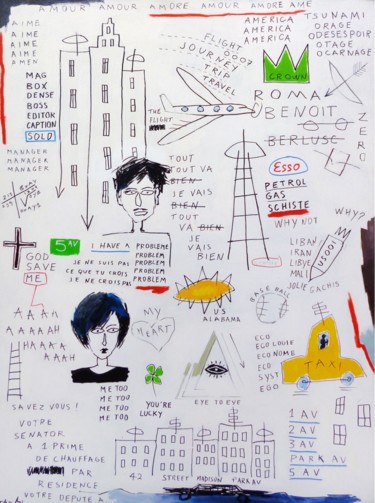 AMOUR AMOUR AMORE AMOUR AMORE AME
AIME
AIME
AIME
AIME
AMEN
MAG
BOX
DENSE
BOSS
EDITOR
CAPTION
SOLD
MANAGER
MANAGER
MANAGER
FLIGHT
0007
JOURNEY
TRIP
TRAVEL
AMERICA
AMERICA
AMERICA
TSUNAMI
ORAGE
O DESESPOIR
OTAGE
O CARNAGE
CROWN
ROMA
BENOIT
BERLUSC
ZERO
THE
FLIGHT
TOUT
TOUT VA
BIEN
JE VAIS
BIEN
TOUT
VA BIEN
JE
VAIS
BIEN
Esso
PETROL
GAS
SCHISTE
WHY NOT
WHY?
LIBAN
IRAN
LIBYE
MALI
JULIE GACHIS
GOD
SAVE
ME
5 AV
I HAVE A PROBLEME
PROBLEM
JE NE SUIS PAS PROBLEM
CE QUE TU CROIS PROBLEM
JE NE CROIS PAS PROBLEM
AAAA
AAAAAH
HAAA'A
AAAH
MY
HEART
US
ALABAMA
BASE BALL
ECO
EGO LOUIE
ECO NOME
ECO
SYST
EGO
TAXI
ME TOO
ME TOO
ME TOO
ME TOO
YOU'RE
LUCKY
EYE TO EYE
SAVEZ VOUS !
VOTRE
SENATOR
A 1 PRIME
DE CHAUFFAGE
PAR
RESIDENCE
VOTRE DEPUTE A
42 STREET MADISON PARK AV
1 AV
2 AV
3 AV
PARK AV
5 AV